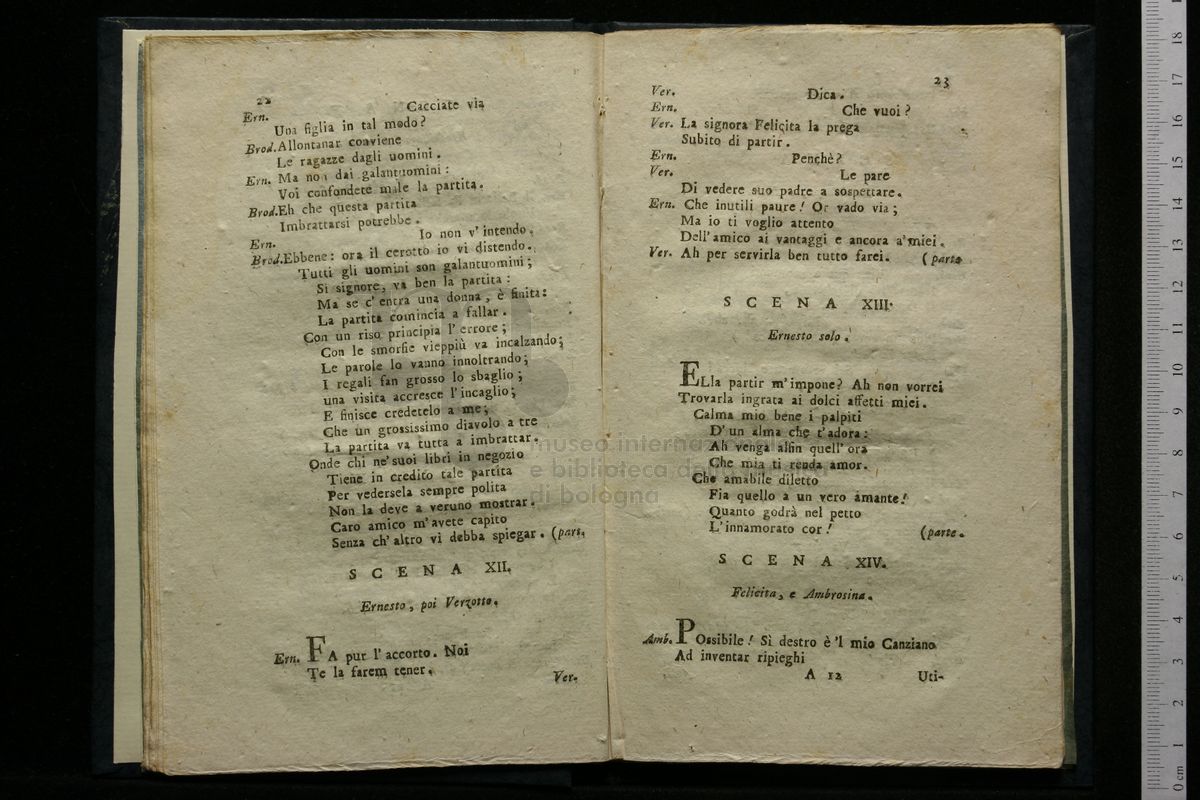 22
Cacciate via
Ern.
Una figlia in tal modo?
Brod. Allontanar conviene
Le ragazze dagli uomini.
Ern. Ma non dai galantuomini:
Voi confondete male la partita.
Brod. Eh che questa partita
Imbrattarsi potrebbe.
Ern. Io non v'intendo.
Brod. Ebbene: ora il cerotto io vi distendo.
Tutti gli uomini son galantuomini;
Si signore, va ben la partita:
Ma se c'entra una donna, è finita:
La partita comincia a fallar.
Con un riso principia l'errore;
Con le smorfie vieppiù va incalzando;
Le parole lo vanno innoltrando;
I regali fan grosso lo sbaglio;
una visita accresce l'incaglio;
E finisce credetelo a me;
Che un grossissimo diavolo a tre
La partita va tutta a imbrattar.
Onde chi ne' suoi libri in negozio
Tiene in credito tale partita
Per vedersela sempre polita
Non la deve a veruno mostrar.
Caro amico m'avete capito
Senza ch'altro vi debba spiegar. (part.
SCENA XII.
Ernesto, poi Verzotto.
Ern. FA pur l'accorto. Noi
Te la farem tener.
Ver-
23
Ver. Dica.
Ern. Che vuoi?
Ver. La signora Felicita la prega
Subito di partir.
Ern. Penchè?
Ver. Le pare
Di vedere suo padre a sospettare.
Ern. Che inutili paure! Or vado via;
Ma io ti voglio attento
Dell'amico ai vantaggi e ancora a'miei.
Ver. Ah per servirla ben tutto farei. (parte
SCENA XIII.
Ernesto solo.
ELla partir m'impone? Ah non vorrei
Trovarla ingrata ai dolci affetti miei.
Calma mio bene i palpiti
D'un alma che t'adora:
Ah venga alfin quell'ora
Che mia ti renda amor.
Che amabile diletto
Fia quello a un vero amante!
Quanto godrà nel petto
L'innamorato cor! (parte.
SCENA XIV.
Felicita, e Ambrosina.
Amb. POssibile! Sì destro è 'l mio Canziano
Ad inventar ripieghi
A 12 Uti-
museo internazionale
e biblioteca della musica
di bologna
0 cm 1 2 3 4 5 6 7 8 9 10 11 12 13 14 15 16 17 18